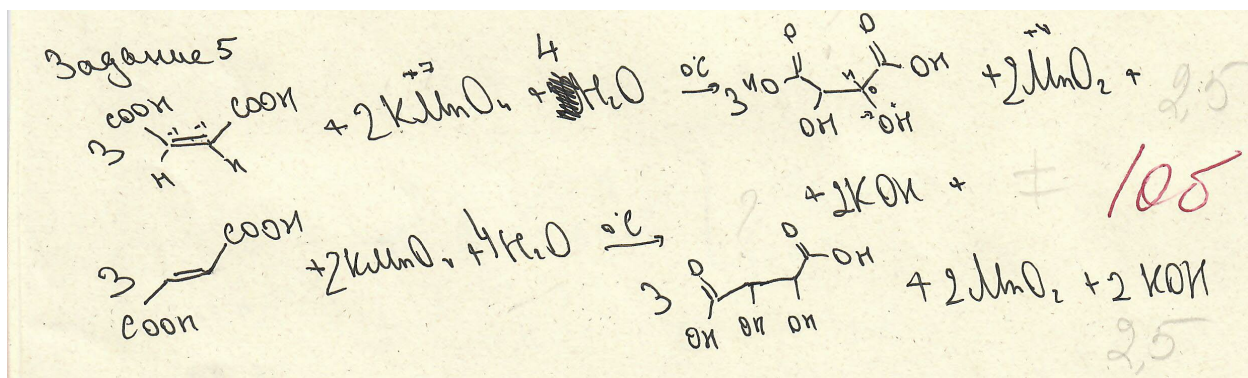 Задание 5
3 COOH COOH H H + 2KMnO4 + 4 H2O 0°C → 3 HO O OH H OH O OH + 2MnO2 +
+ 2KOH +
10б
3 COOH COOH + 2KMnO4 + 4H2O 0°C → 3 O OH OH OH O OH + 2MnO2 + 2KOH
2,5